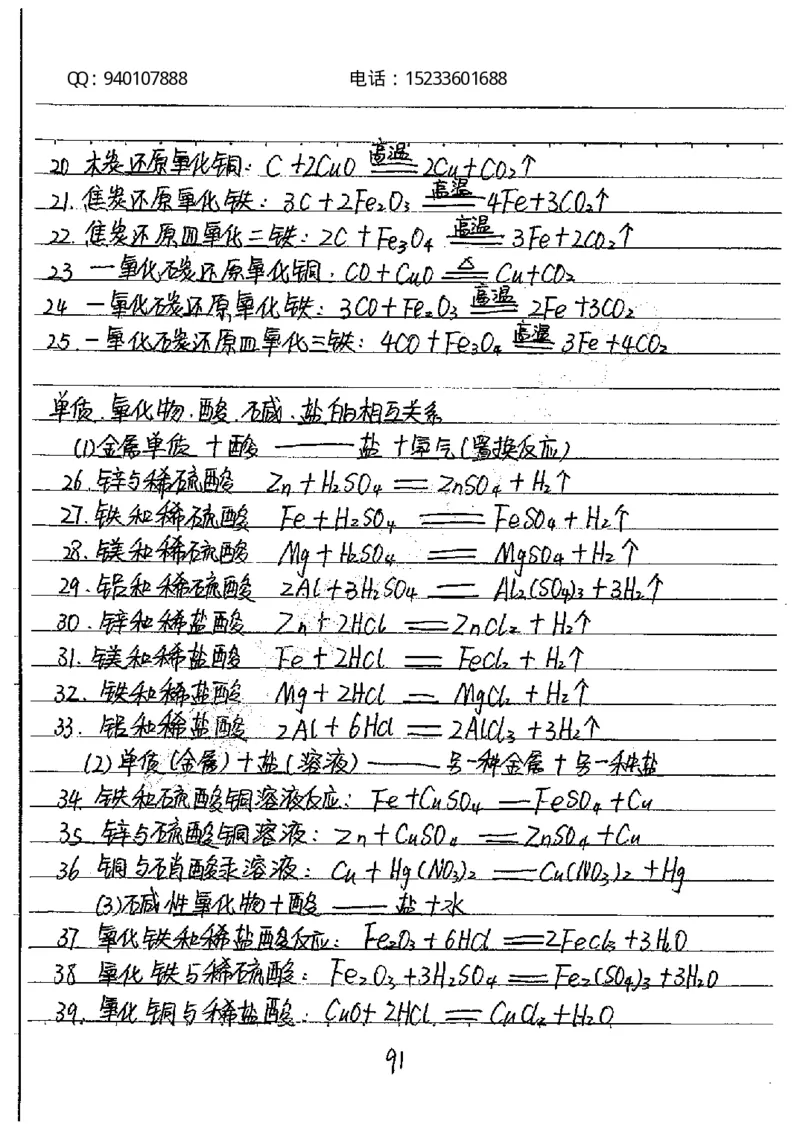 QQ：940107888 电话：15233601688
20 木炭还原氧化铜：C+2CuO 高温══ 2Cu+CO₂↑
21.焦炭还原氧化铁：3C+2Fe₂O₃ 高温══ 4Fe+3CO₂↑
22.焦炭还原四氧化三铁：2C+Fe₃O₄ 高温══ 3Fe+2CO₂↑
23 一氧化碳还原氧化铜：CO+CuO △══ Cu+CO₂
24 一氧化碳还原氧化铁：3CO+Fe₂O₃ 高温══ 2Fe+3CO₂
25.一氧化碳还原四氧化三铁：4CO+Fe₃O₄ 高温══ 3Fe+4CO₂
单质、氧化物、酸、碱、盐的相互关系
(1)金属单质＋酸 —— 盐＋氢气(置换反应)
26.锌与稀硫酸 Zn+H₂SO₄══ZnSO₄+H₂↑
27.铁和稀硫酸 Fe+H₂SO₄══FeSO₄+H₂↑
28.镁和稀硫酸 Mg+H₂SO₄══MgSO₄+H₂↑
29.铝和稀硫酸 2Al+3H₂SO₄══Al₂(SO₄)₃+3H₂↑
30.锌和稀盐酸 Zn+2HCl══ZnCl₂+H₂↑
31.镁和稀盐酸 Fe+2HCl══FeCl₂+H₂↑
32.铁和稀盐酸 Mg+2HCl══MgCl₂+H₂↑
33.铝和稀盐酸 2Al+6HCl══2AlCl₃+3H₂↑
(2)单质(金属)＋盐(溶液) —— 另一种金属＋另一种盐
34.铁和硫酸铜溶液反应：Fe+CuSO₄══FeSO₄+Cu
35.锌与硫酸铜溶液：Zn+CuSO₄══ZnSO₄+Cu
36 铜与硝酸汞溶液：Cu+Hg(NO₃)₂══Cu(NO₃)₂+Hg
(3)碱性氧化物＋酸 —— 盐＋水
37 氧化铁和稀盐酸反应：Fe₂O₃+6HCl══2FeCl₃+3H₂O
38 氧化铁与稀硫酸：Fe₂O₃+3H₂SO₄══Fe₂(SO₄)₃+3H₂O
39.氧化铜与稀盐酸：CuO+2HCl══CuCl₂+H₂O
91